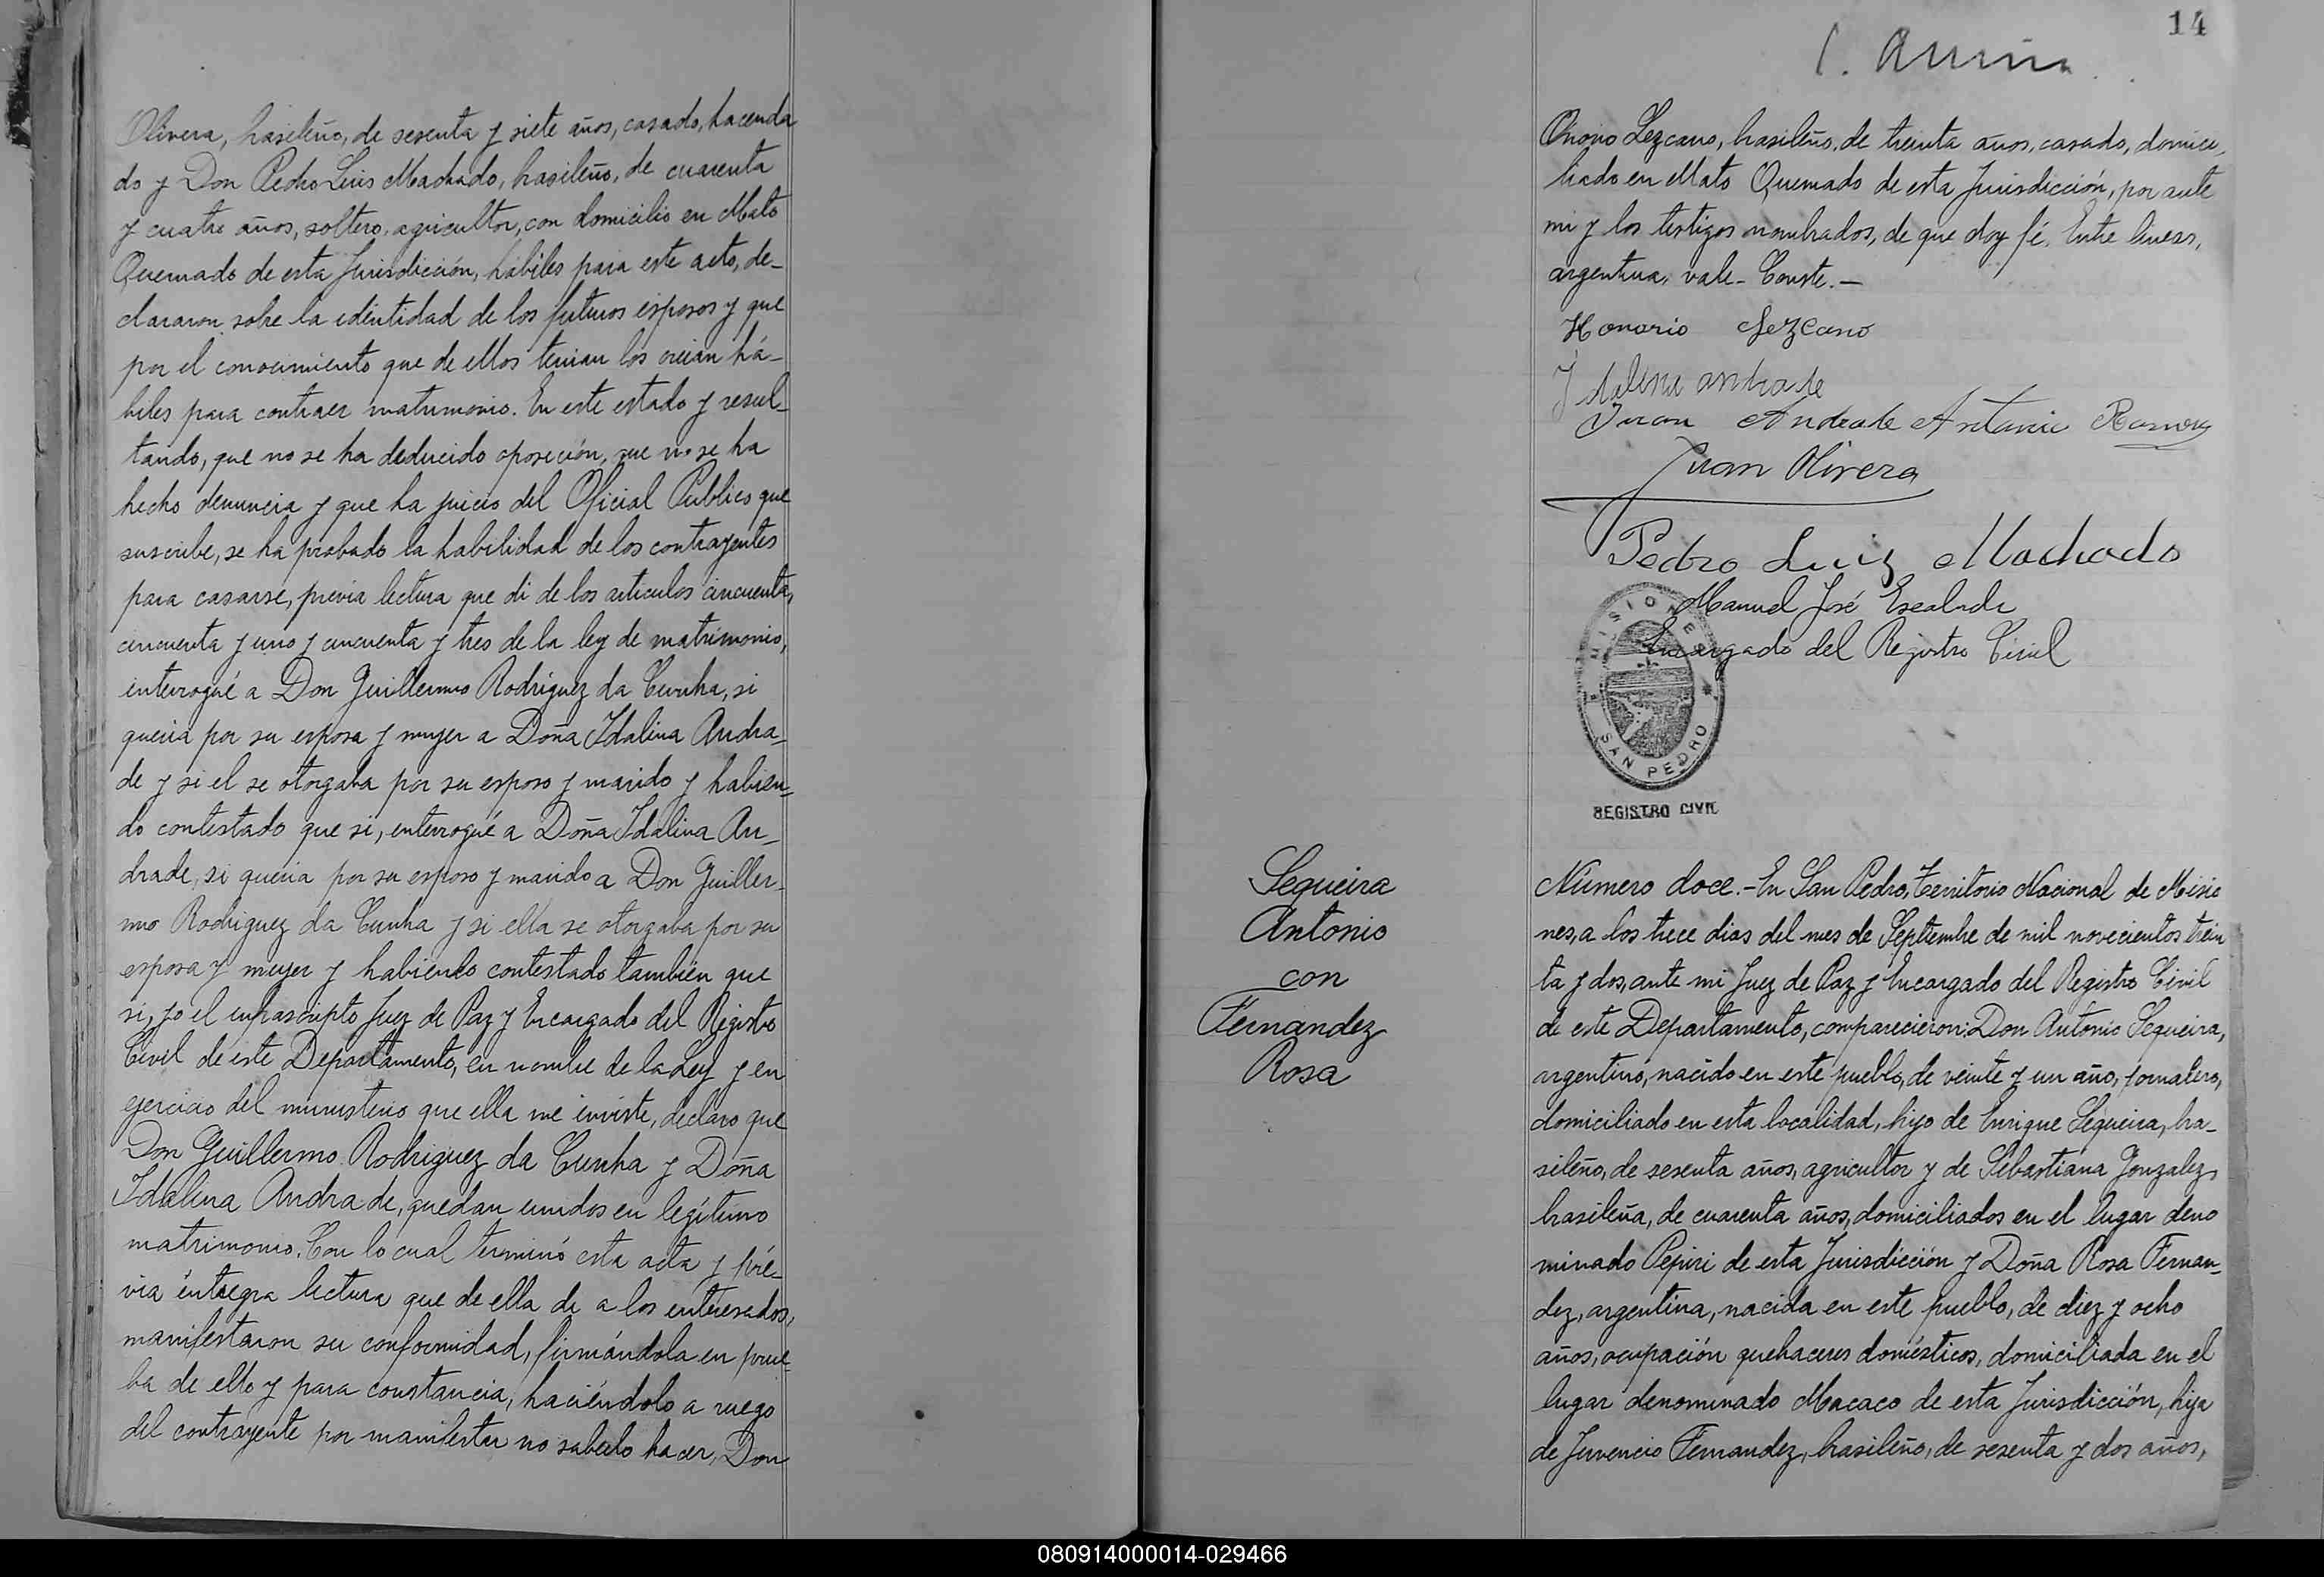 Olivera, brasileño, de sesenta y siete años, casado, hacenda
do y Don Pedro Luis Machado, brasileño, de cuarenta
y cuatro años, soltero, agricultor, con domicilio en Mato
Quemado de esta Jurisdicción, hábiles para este acto, de-
clararon sobre la identidad de los futuros esposos y que
por el conocimiento que de ellos tenian los creian há-
biles para contraer matrimonio. En este estado y resul-
tando, que no se ha deducido oposición, que no se ha
hecho denuncia y que ha juicio del Oficial Publico que
suscribe, se ha probado la habilidad de los contrayentes
para casarse, previa lectura que di de los articulos cincuenta,
cincuenta y uno y cincuenta y tres de la ley de matrimonio,
interrogué a Don Guillermo Rodriguez da Cunha, si
queria por su esposa y mujer a Doña Idalina Andra-
de y si el se otorgaba por su esposo y marido y habien-
do contestado que si, interrogué a Doña Idalina An-
drade, si queria por su esposo y marido a Don Guiller-
mo Rodriguez da Cunha y si ella se otorgaba por su
esposa y mujer y habiendo contestado también que
si, yo el infrascripto Juez de Paz y Encargado del Registro
Civil de este Departamento, en nombre de la Ley y en
ejercicio del ministerio que ella me inviste, declaro que
Don Guillermo Rodriguez da Cunha y Doña
Idalina Andrade, quedan unidos en legítimo
matrimonio. Con lo cual terminó esta acta y pré-
via íntegra lectura que de ella di a los interesados,
manifestaron su conformidad, firmándola en prue-
ba de ello y para constancia, haciéndolo a ruego
del contrayente por manifestar no saberlo hacer, Don
14
Onorio Lezcano, brasileño, de treinta años, casado, domici-
liado en Mato Quemado de esta Jurisdicción, por ante
mi y los testigos nombrados, de que doy fé. Entre lineas,
argentina, vale- Conste.-
Honorio Lezcano
Idalina andrade
Juan Andrade Antonio Ramos
Juan Olivera
Pedro Luiz Machado
Manuel José Escalada
Encargado del Registro Civil
MISIONES
SAN PEDRO
REGISTRO CIVIL
Sequeira
Antonio
con
Fernandez
Rosa
Número doce.- En San Pedro, Territorio Nacional de Misio
nes, a los trece dias del mes de Septiembre de mil novecientos trein
ta y dos, ante mi Juez de Paz y Encargado del Registro Civil
de este Departamento, comparecieron: Don Antonio Sequeira,
argentino, nacido en este pueblo, de veinte y un año, jornalero,
domiciliado en esta localidad, hijo de Enrique Sequeira, bra-
sileño, de sesenta años, agricultor y de Sebastiana Gonzalez,
brasileña, de cuarenta años, domiciliados en el lugar deno
minado Pepiri de esta Jurisdicción y Doña Rosa Fernan-
dez, argentina, nacida en este pueblo, de diez y ocho
años, ocupación quehaceres domésticos, domiciliada en el
lugar denominado Macaco de esta Jurisdicción, hija
de Juvencio Fernandez, brasileño, de sesenta y dos años,
080914000014-029466